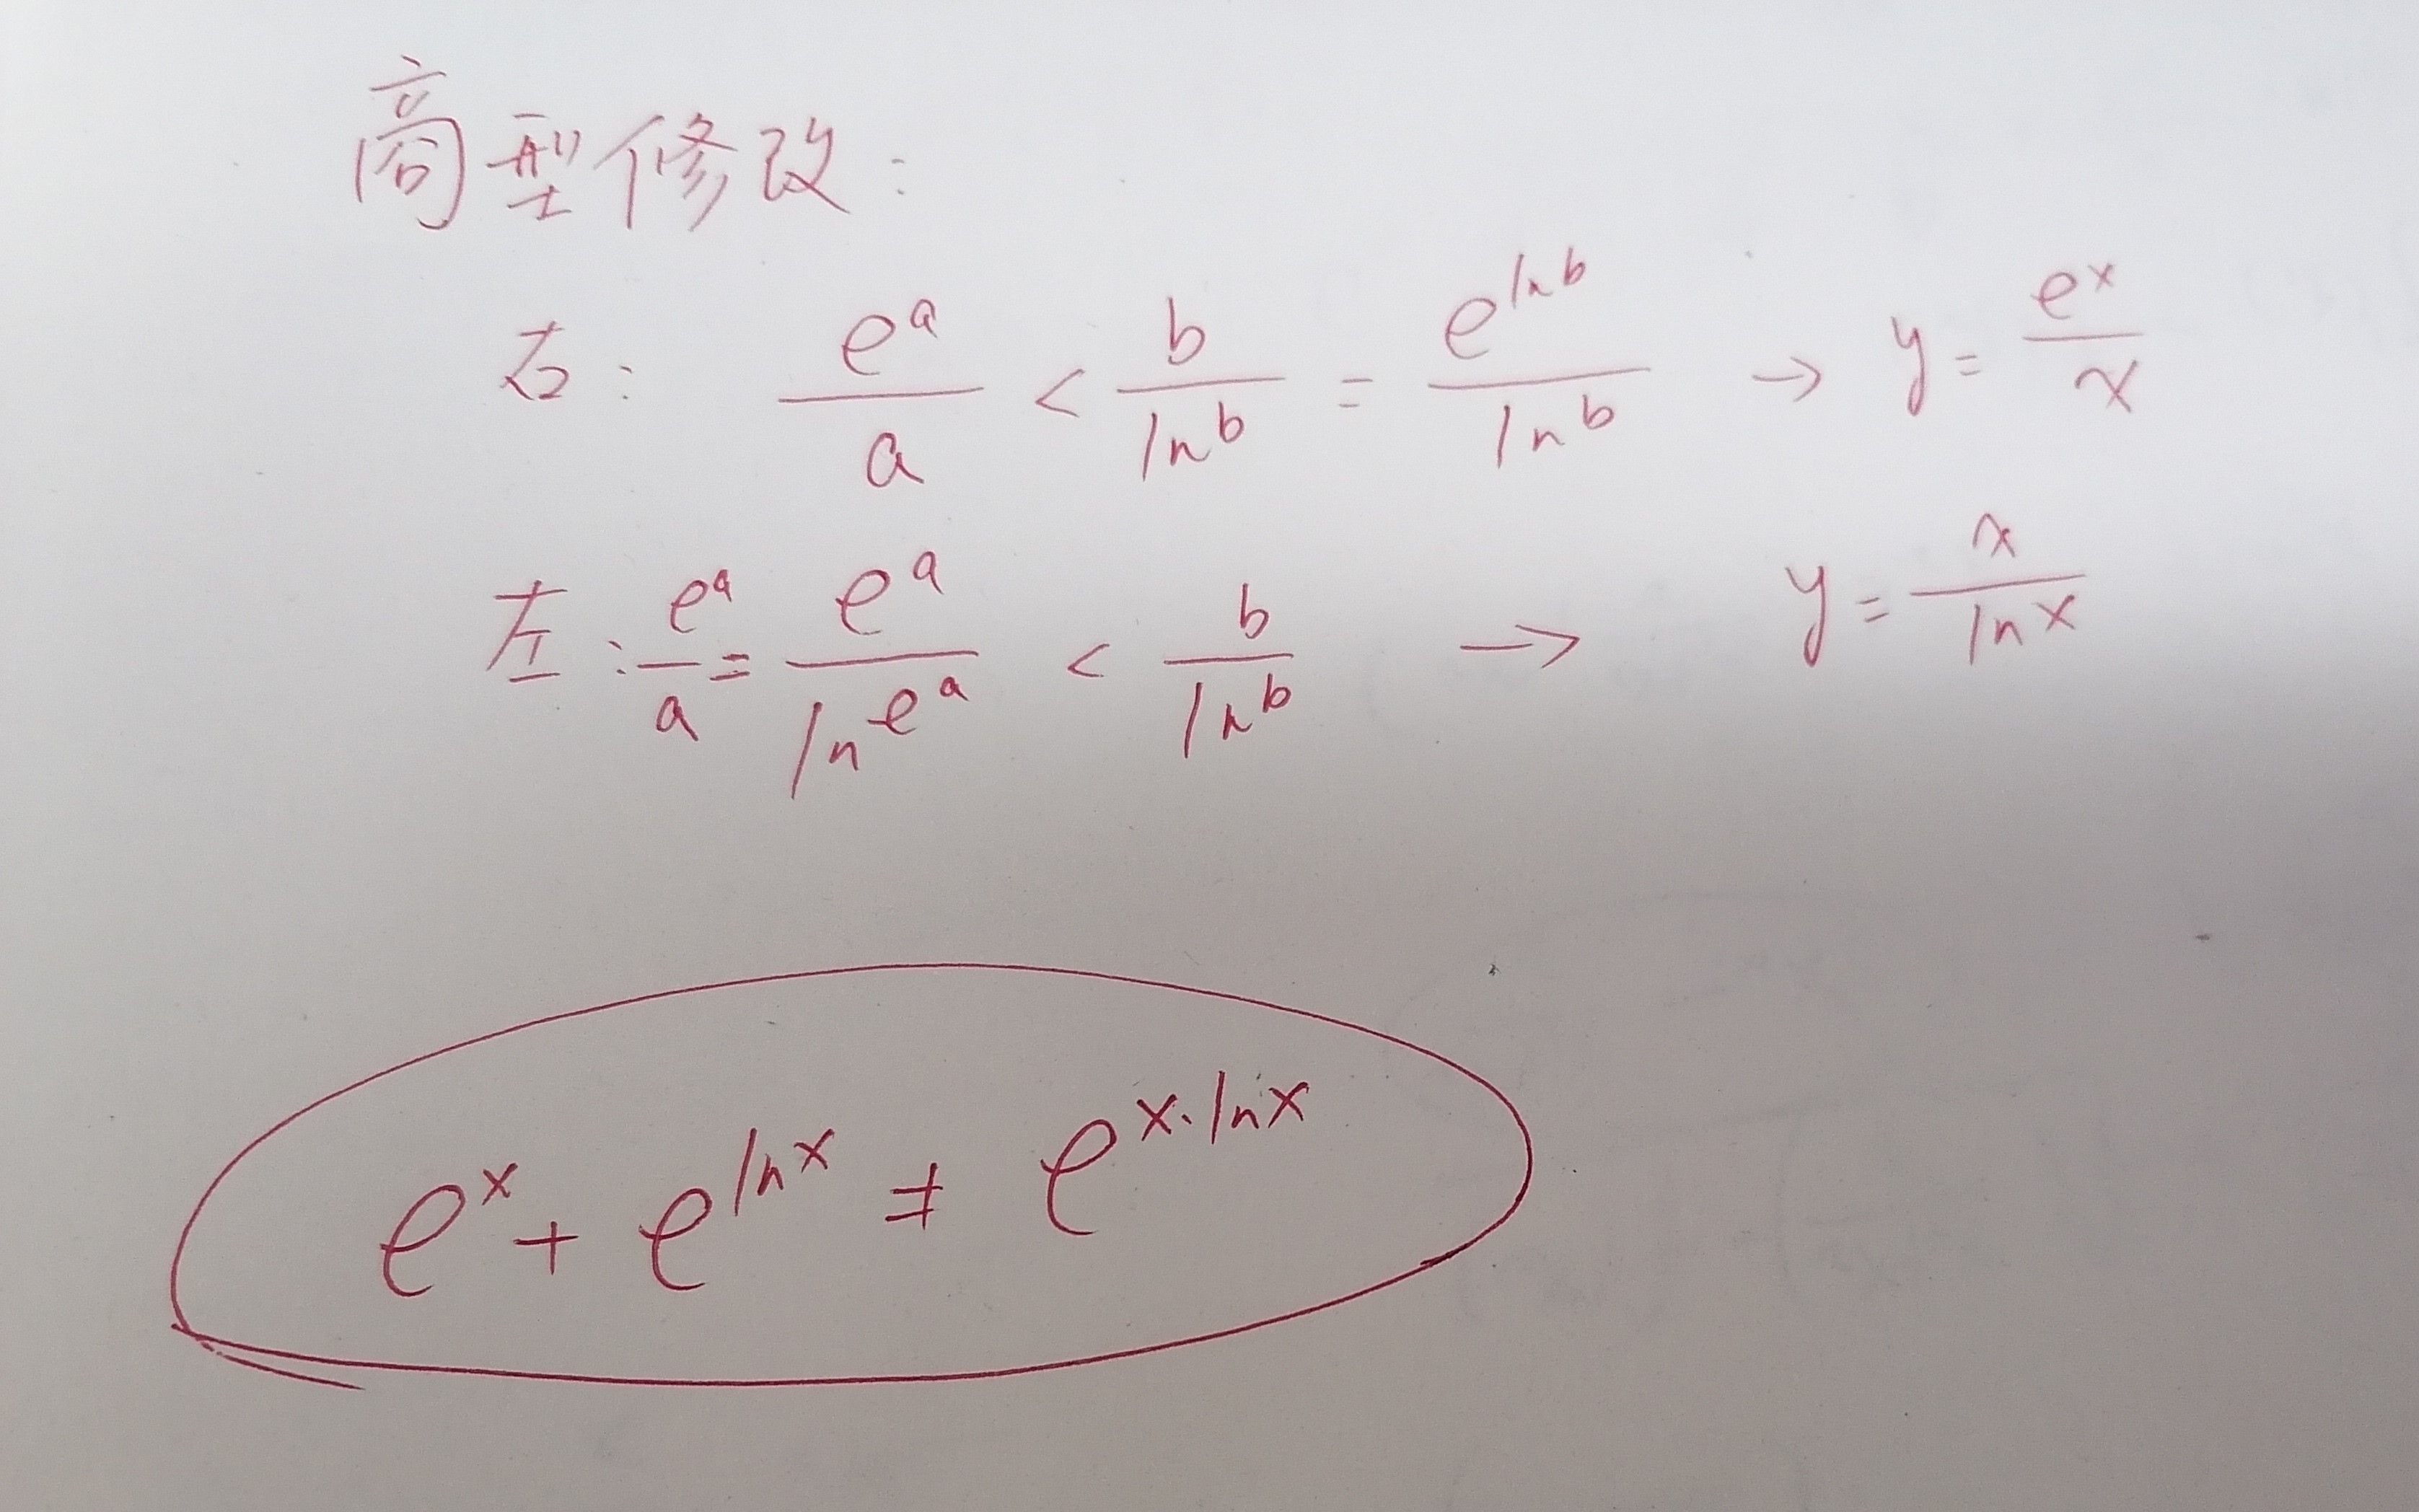 商型修改：
右： e^a / a < b / ln b = e^{ln b} / ln b → y = e^x / x
左： e^a / a = e^a / ln e^a < b / ln b → y = x / ln x
e^x + e^{ln x} ≠ e^{x·ln x}